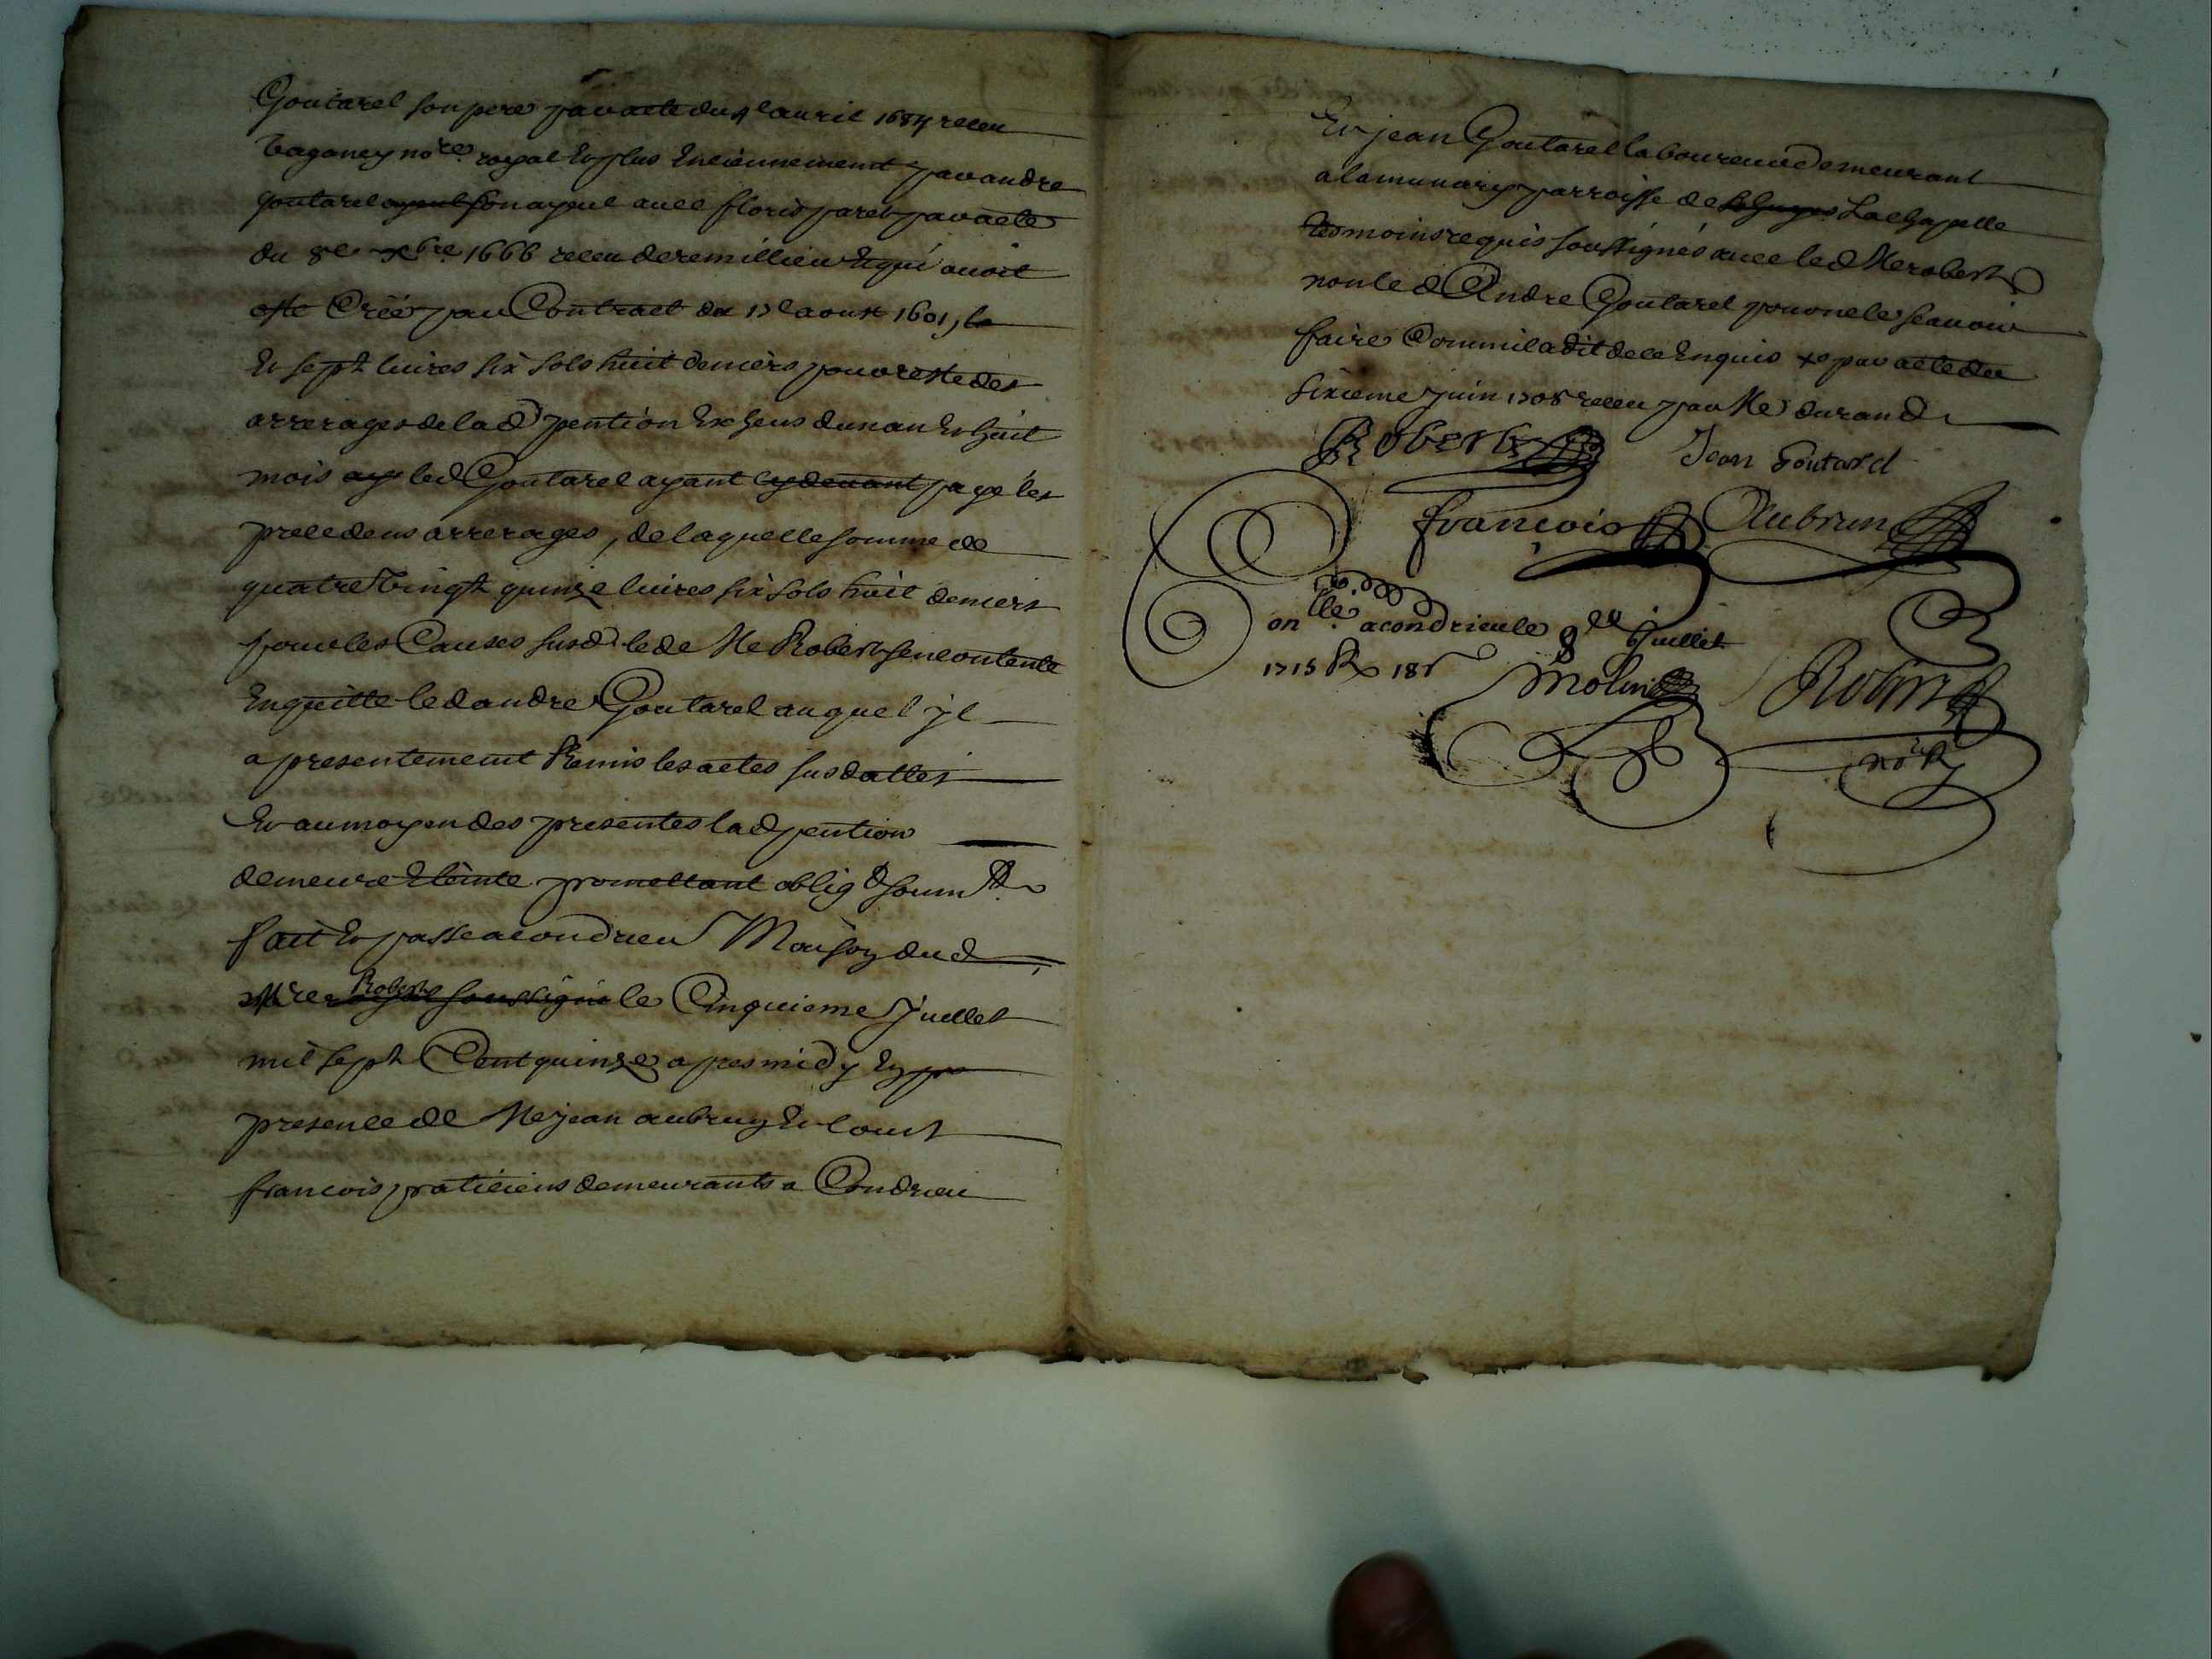 Goutarel son pere par acte du 4e auril 1684 receu
Bagoney nore. royal Et plus Enciennement par andre
goutarel son ayeul auec floris paret par acte
du 8e xbre 1666 receu deremillieu Et qui auoit
esté Créé par Contract du 17e aoust 1601,
Et sept liures six sols huit deniers pour reste des
arrerages de lad pention Escheus dun an Et huit
mois led Goutarel ayant cy deuant payé les
precedens arrerages, de laquelle somme de
quatre Vingt quinze liures six sols huit deniers
pour les Causes susd led Me Robert sen contente
En quitte led andre Goutarel auquel jl
a presentement Remis les actes sus dattes
Et au moyen des presentes lad pention
demeure Eteinte promettant oblig soum
fait Et passe a condrieu Maison dud
Robert le Cinquieme Juillet
mil sept Cent quinze apres midy En
presence de Me jean aubrun Et louis
francois praticiens demeurants a Condrieu
Et jean Goutarel laboureur demeurant
a lamunary parroisse de La Chapelle
tesmoins requis soussignés auec led Me robert
non led Andre Goutarel pour ne le scauoir
faire Comme il a dit de ce Enquis par acte du
sixieme juin 1708 receu par Me durand
Robert Jean Goutarel
françois Aubrun
Conlle. a condrieu le 8e Juillet
1715 R 18s
Molin Robin
nore R